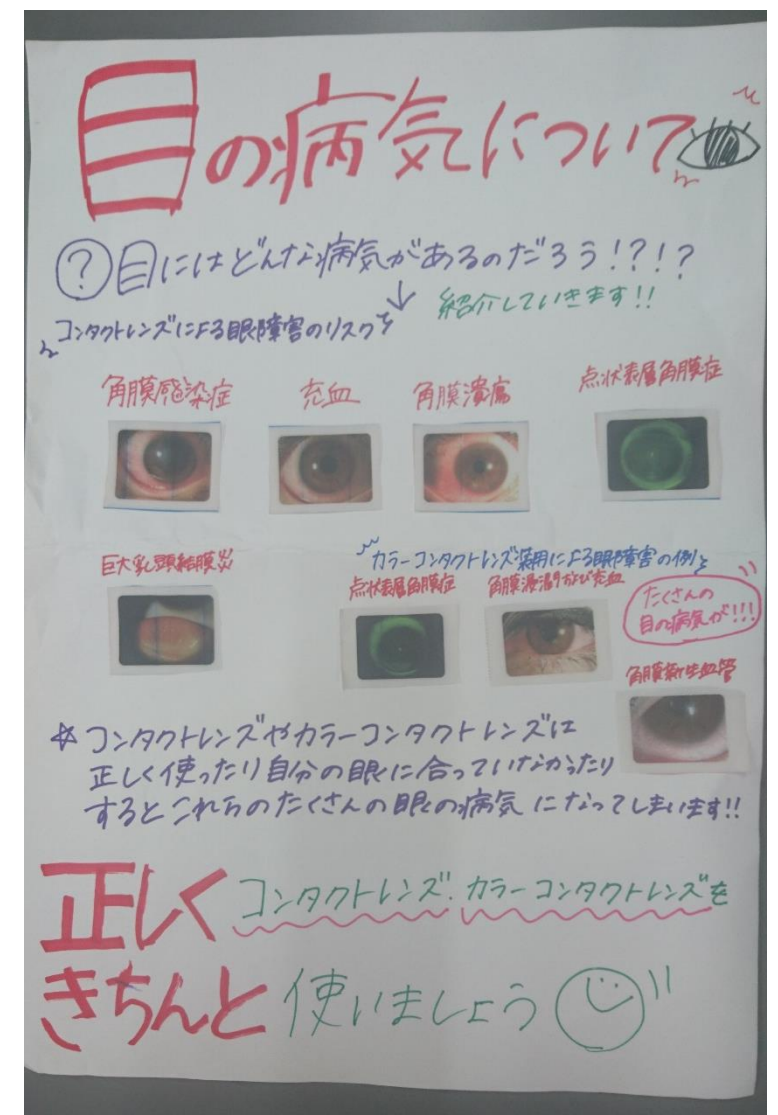 目の病気について
?目にはどんな病気があるのだろう!?!?
↓ 紹介していきます!!
コンタクトレンズによる眼障害のリスク
角膜感染症 充血 角膜潰瘍 点状表層角膜症
巨大乳頭結膜炎
カラーコンタクトレンズ装用による眼障害の例
点状表層角膜症 角膜浸潤および充血
たくさんの
目の病気が!!!
角膜新生血管
☆コンタクトレンズやカラーコンタクトレンズは
正しく使ったり自分の眼に合っていなかったり
するとこれらのたくさんの眼の病気になってしまいます!!
正しくコンタクトレンズ.カラーコンタクトレンズを
きちんと使いましょう